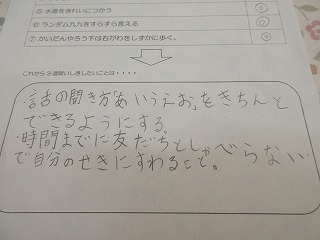 ⑤ 水道をきれいにつかう
⑥ ランダム九九をすらすら言える
⑦ かいだんやろう下は右がわをしずかに歩く。
これから3週間いしきしたいことは・・・・
・話の聞き方「あいうえお」をきちんと
できるようにする。
・時間までに友だちとしゃべらない
で自分のせきにすわること。